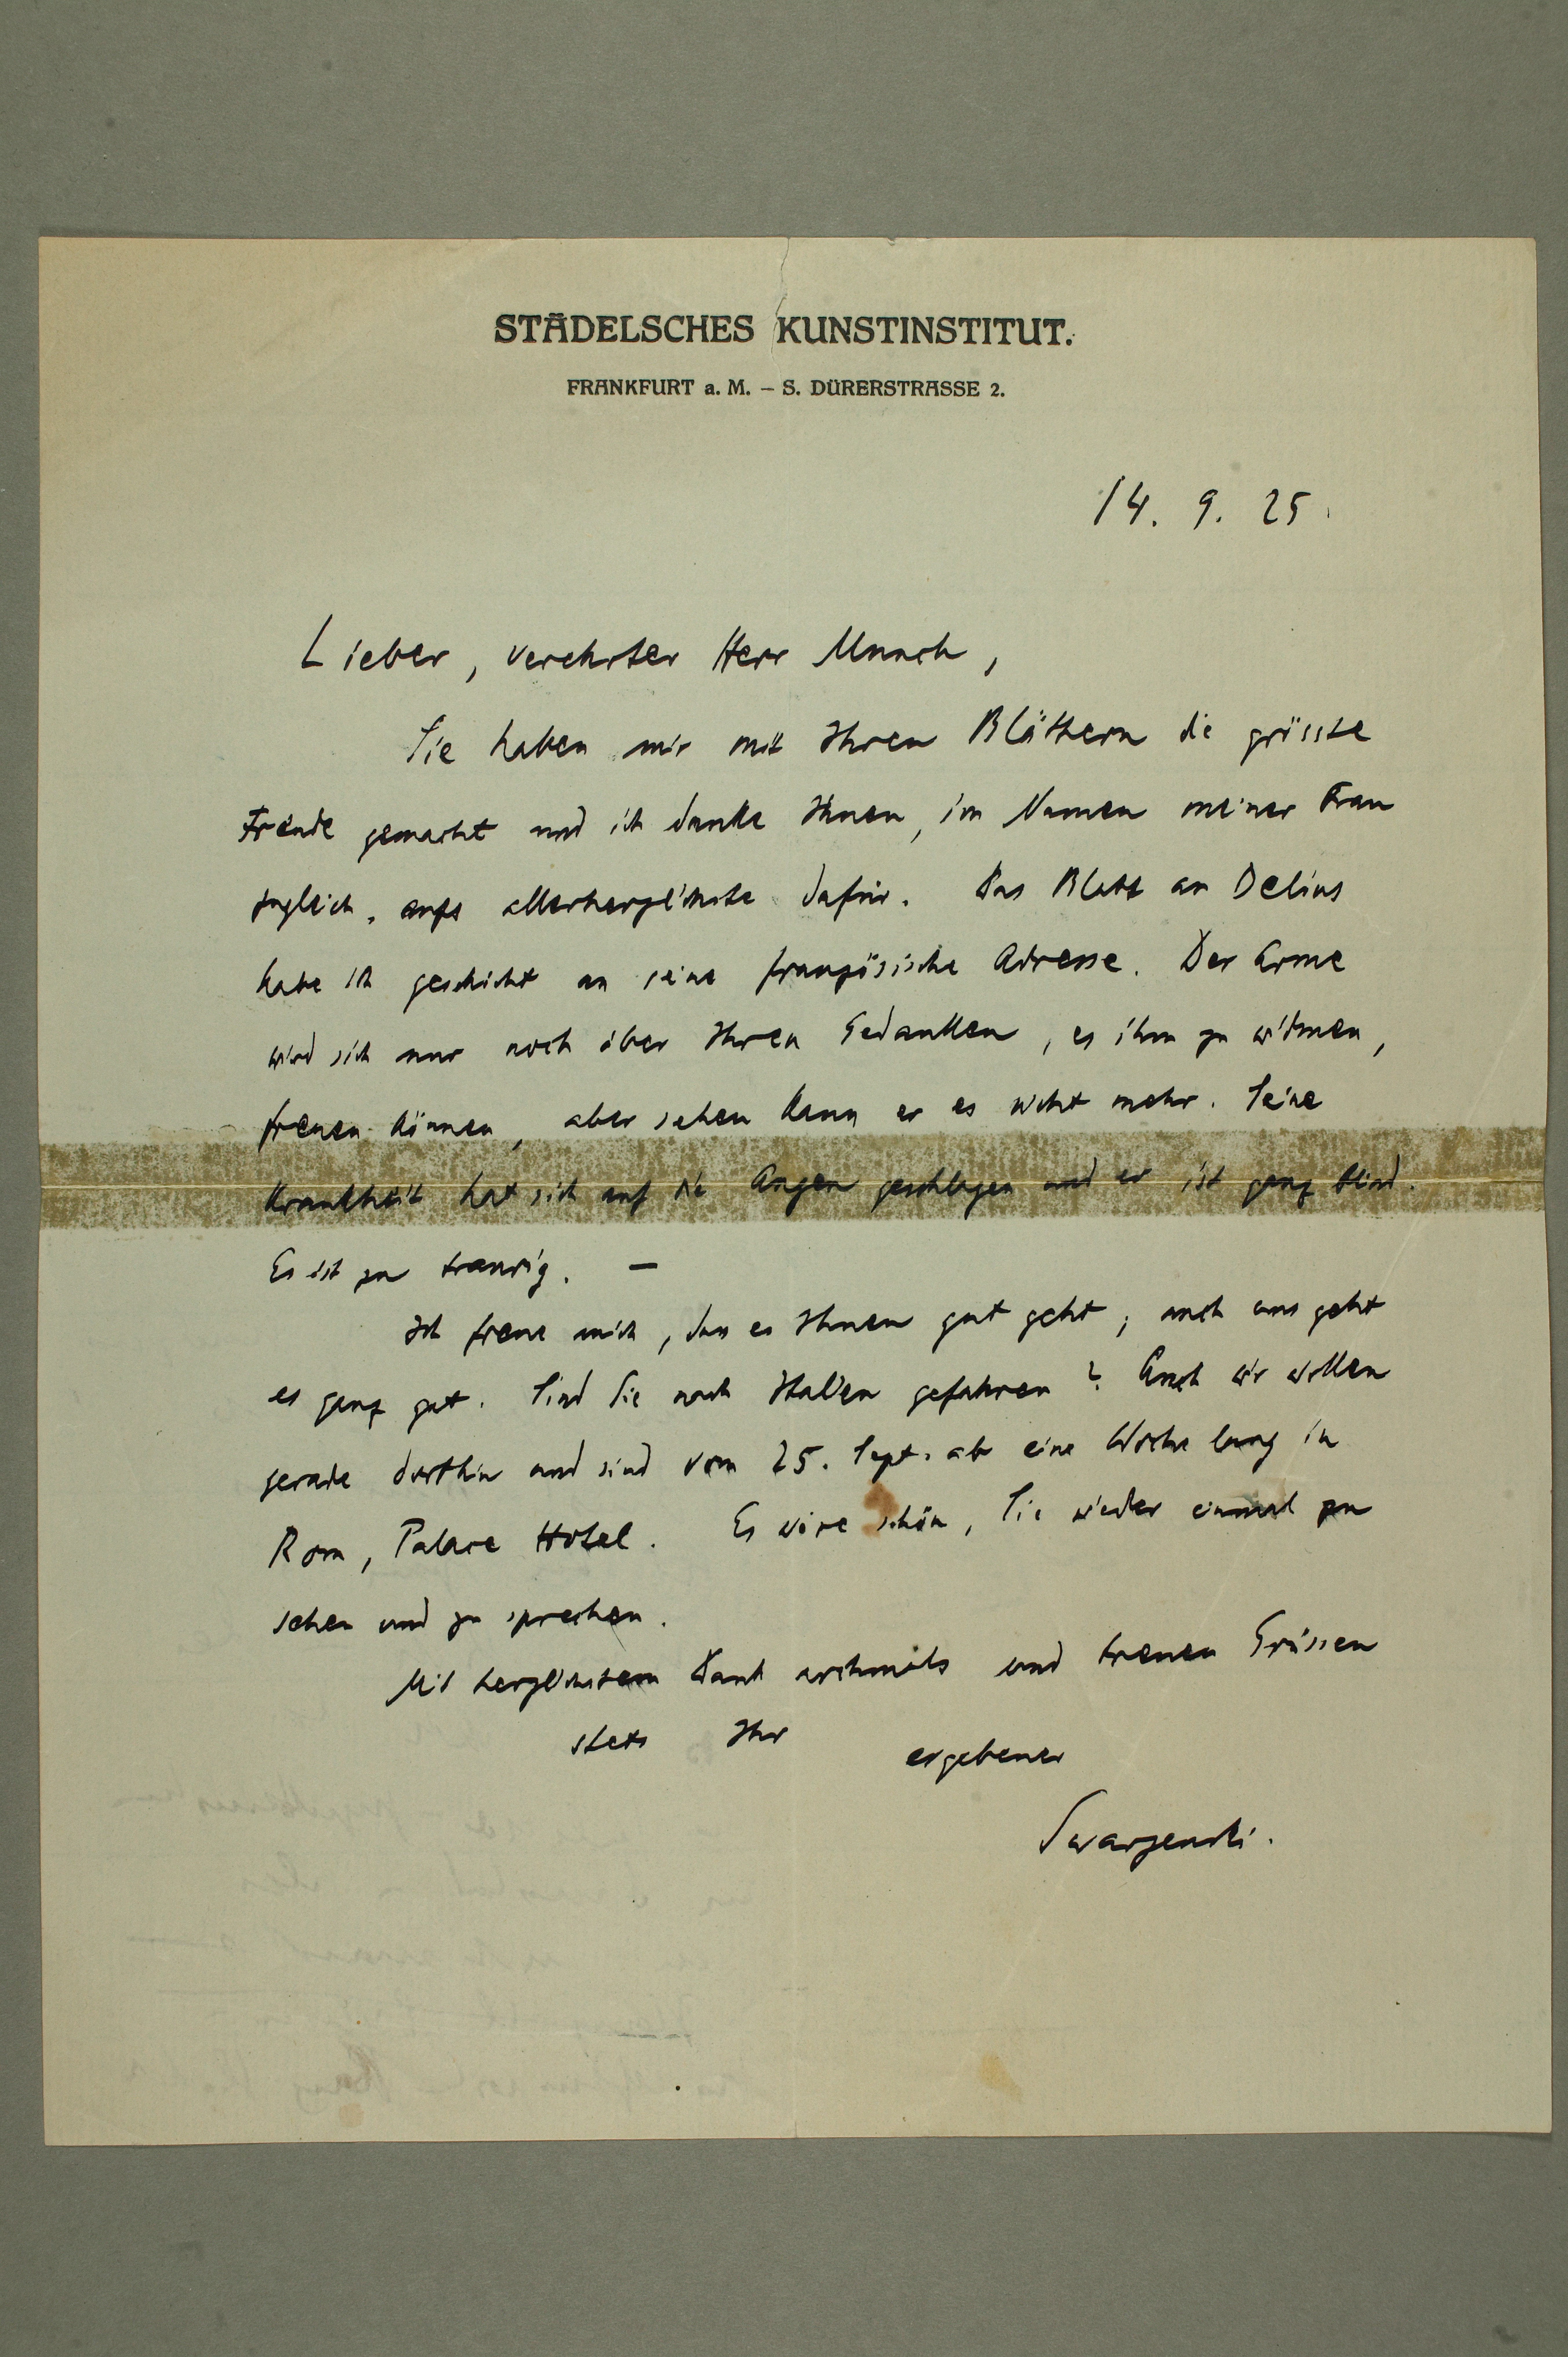 STÄDELSCHES KUNSTINSTITUT.
FRANKFURT a. M. – S. DÜRERSTRASSE 2.
14. 9. 25.
Lieber, verehrter Herr Munch,
Sie haben mir mit Ihren Blättern die grösste
Freude gemacht und ich danke Ihnen, im Namen meiner Frau
zugleich, aufs allerherzlichste dafür. Das Blatt an Delius
habe ich geschickt an seine französische Adresse. Der Arme
wird sich nur noch über Ihren Gedanken, es ihm zu widmen,
freuen können, aber sehen kann er es nicht mehr. Seine
Krankheit hat sich auf die Augen geschlagen und er ist ganz blind.
Es ist zu traurig. –
Ich freue mich, dass es Ihnen gut geht; auch uns geht
es ganz gut. Sind Sie nach Italien gefahren? Auch wir wollen
gerade dorthin und sind vom 25. Sept. ab eine Woche lang in
Rom, Palace Hotel. Es wäre schön, Sie wieder einmal zu
sehen und zu sprechen.
Mit herzlichstem Dank nochmals und treuen Grüssen
stets Ihr ergebener
Swarzenski.